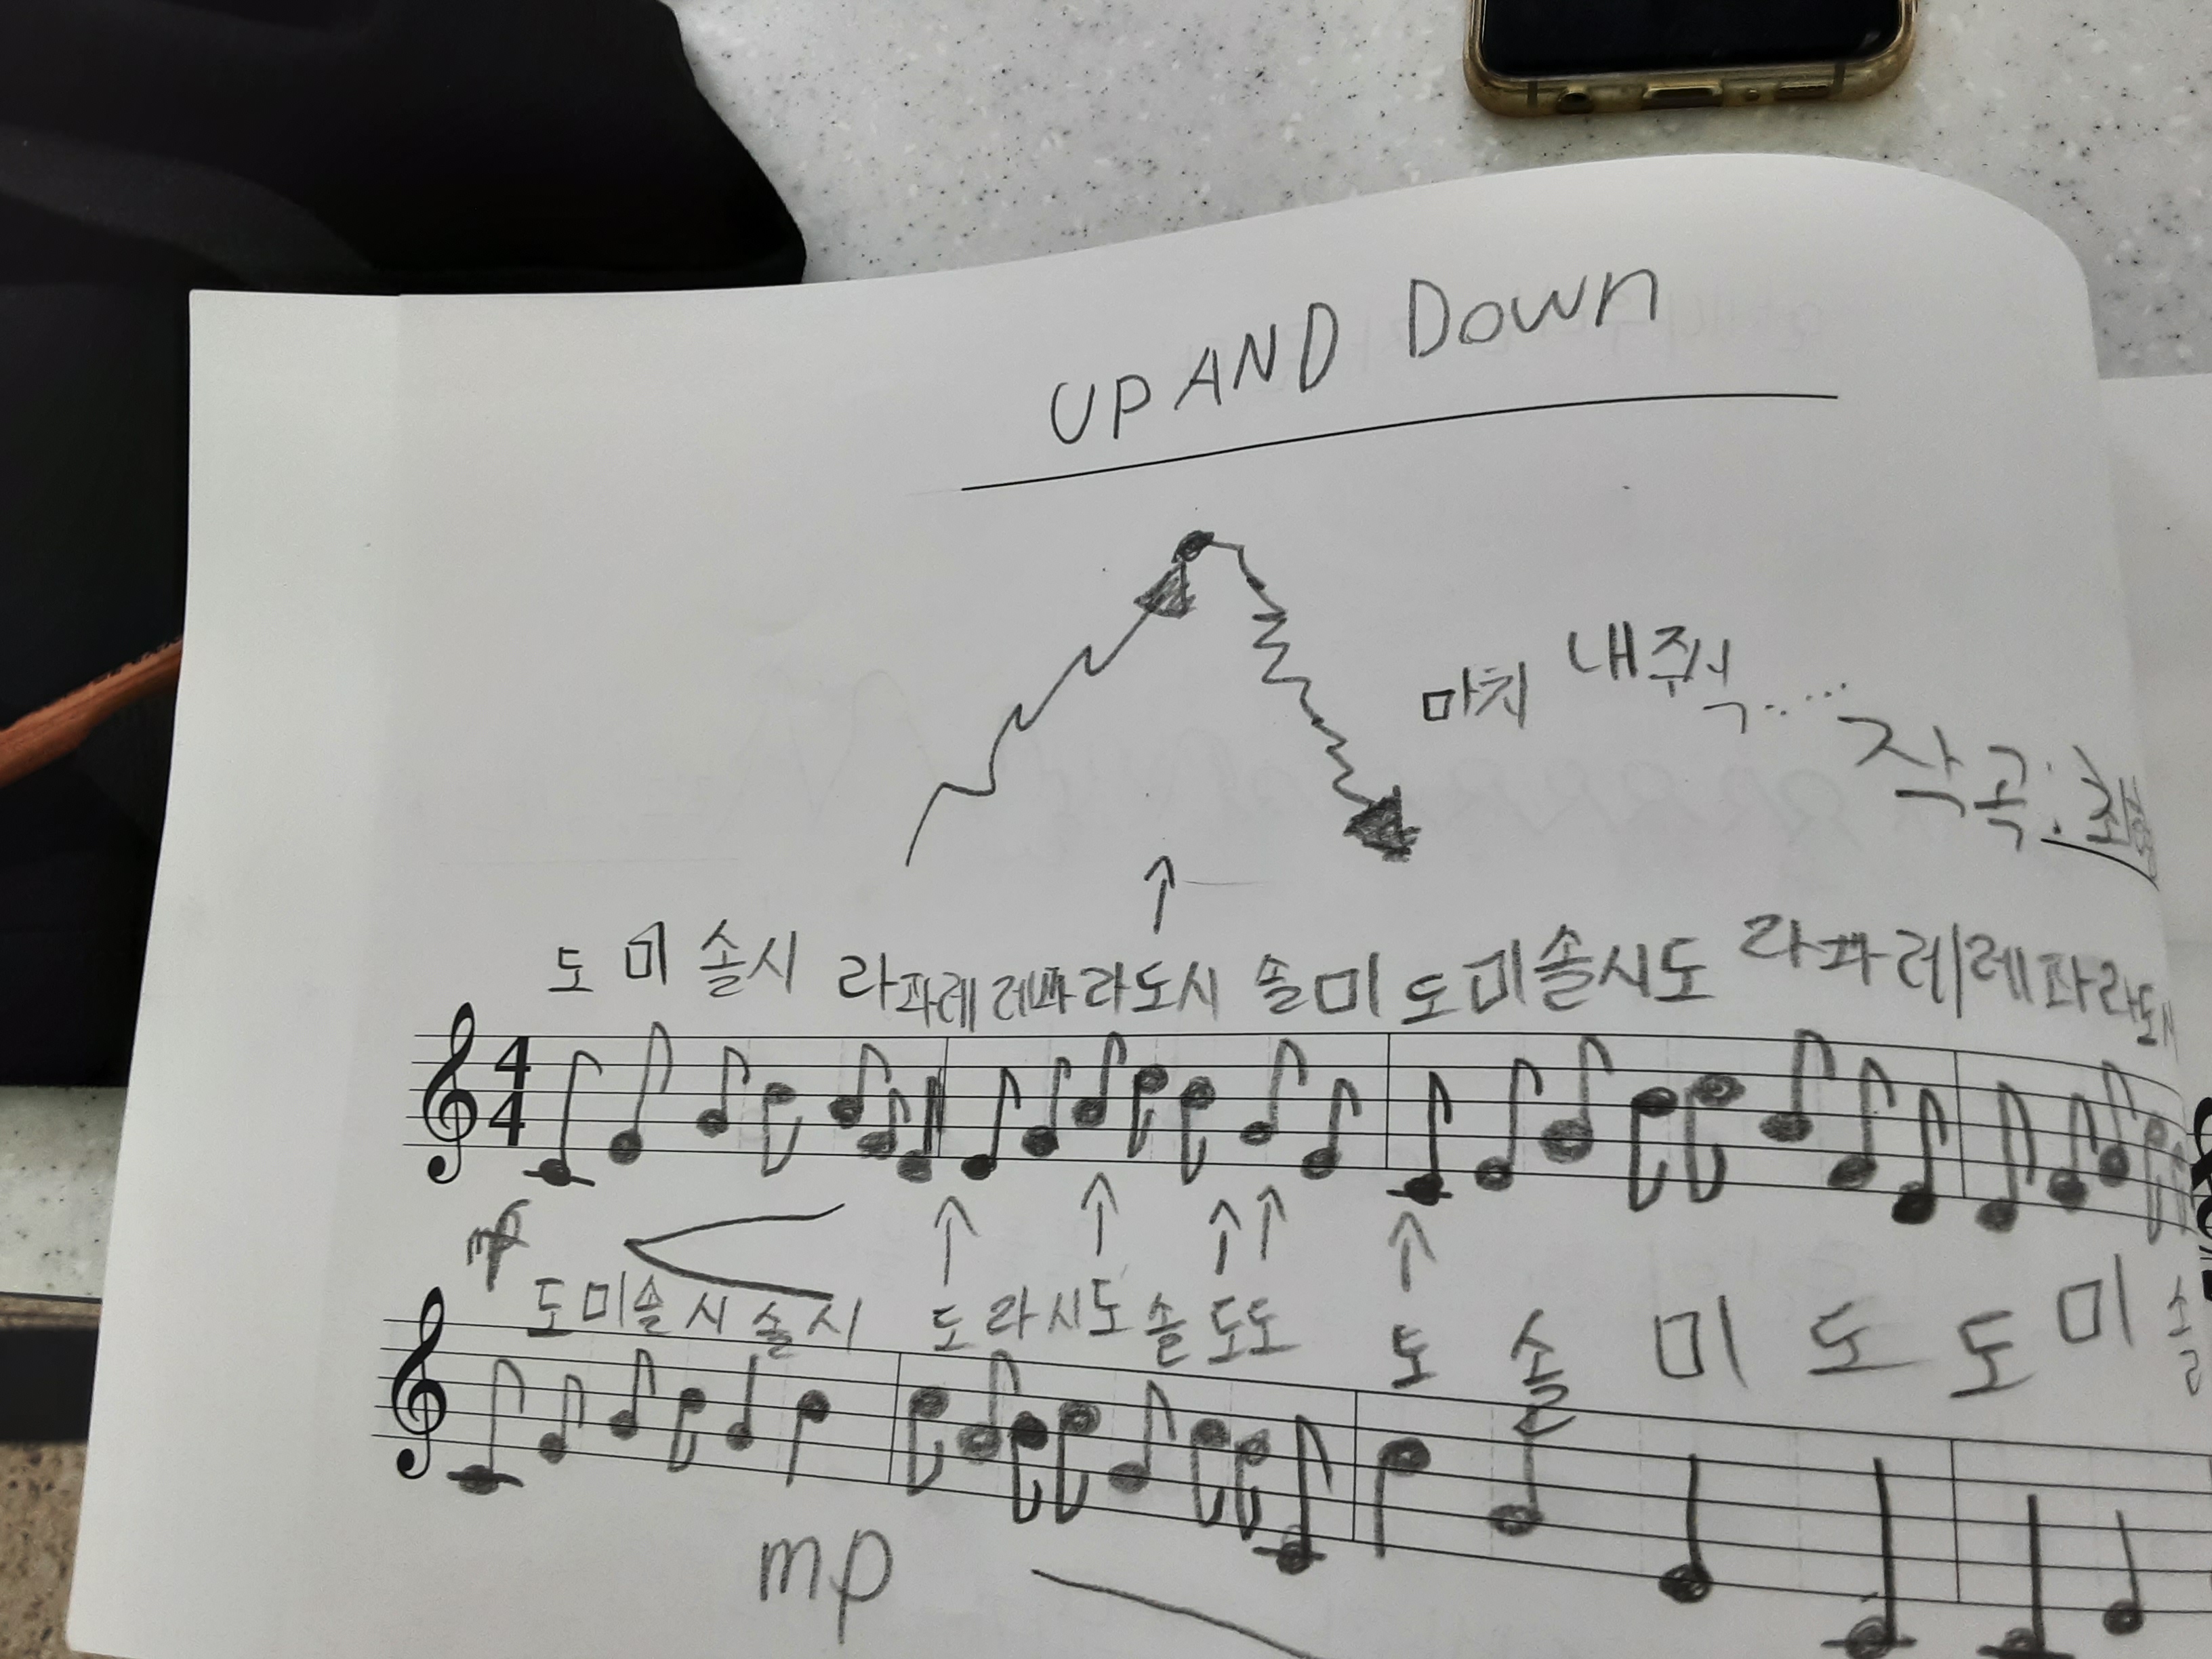 UP AND DOWN
마치 내 주식......
작곡: 최
도 미 솔시 라파레 레파라도시 솔미 도미솔시도 라파레레파라도
4
4
mp
도미솔시솔시 도라시도솔도도 도 솔 미 도 도 미 솔
mp